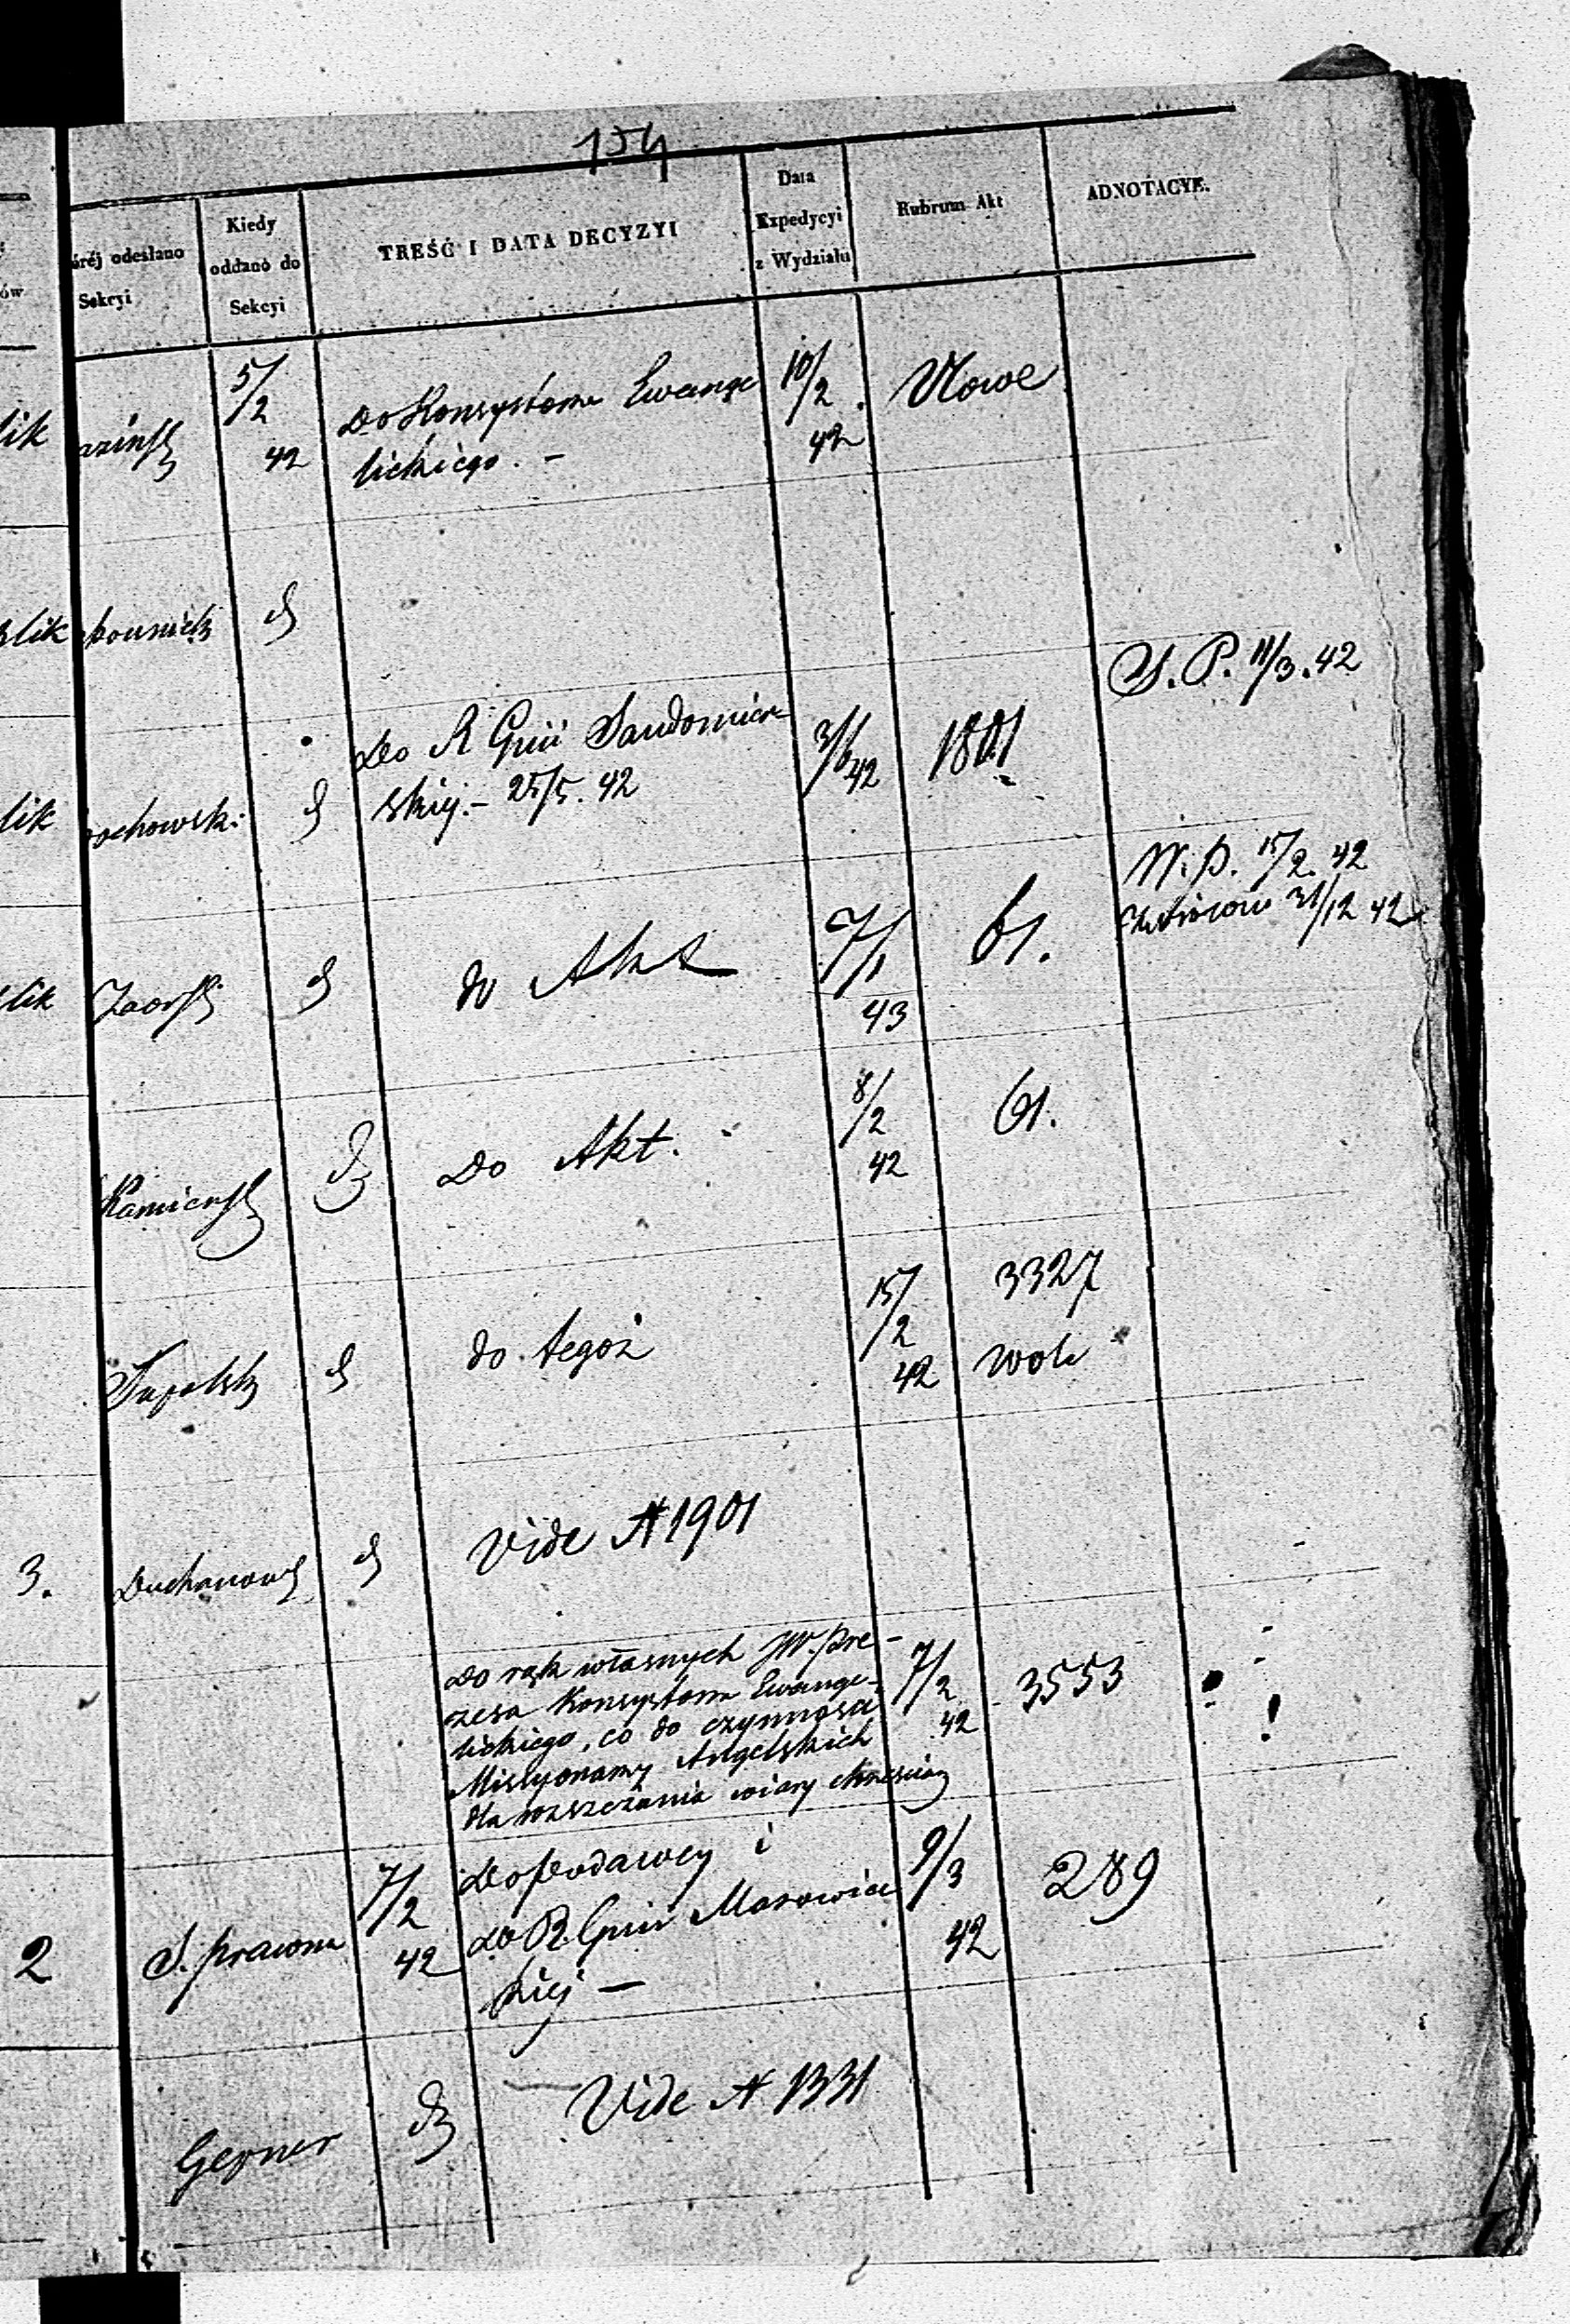 154
óréj odesłano
Sekryi
Kiedy
oddano do
Sekcyi
TREŚĆ I DATA DECYZYI
Data
Expedycyi
z Wydziału
Rubrum Akt
ADNOTACYE.
lik
5/2
42
Do Konsystorza Ewange
lickiego. –
10/2
42
Nowe
lik
S. P. 11/3. 42
lik
ochowski
Do R Gnii Sandomier
skiej. – 25/5. 42
3/6 42
1801
lik
Zaorski
do Akt
7/1
43
61.
W. P. 15/2. 42
31/12 42
Kamieński
Do Akt.
8/2
42
61.
do tegoż
15/2
42
3327
3.
Duchanows
Vide N 1901
Do rąk własnych JW. Pre-
zesa Konsystorza Ewange-
lickiego, co do czynności
Missyonarzy Angelskich
dla rozszerzania wiary chrześciań
7/2
42
3553
!
2
S. prawna
7/2
42
Do podawcy i
do R. Gnii Mazowiec
kiej –
9/3
42
289
Gepner
Vide N 1331